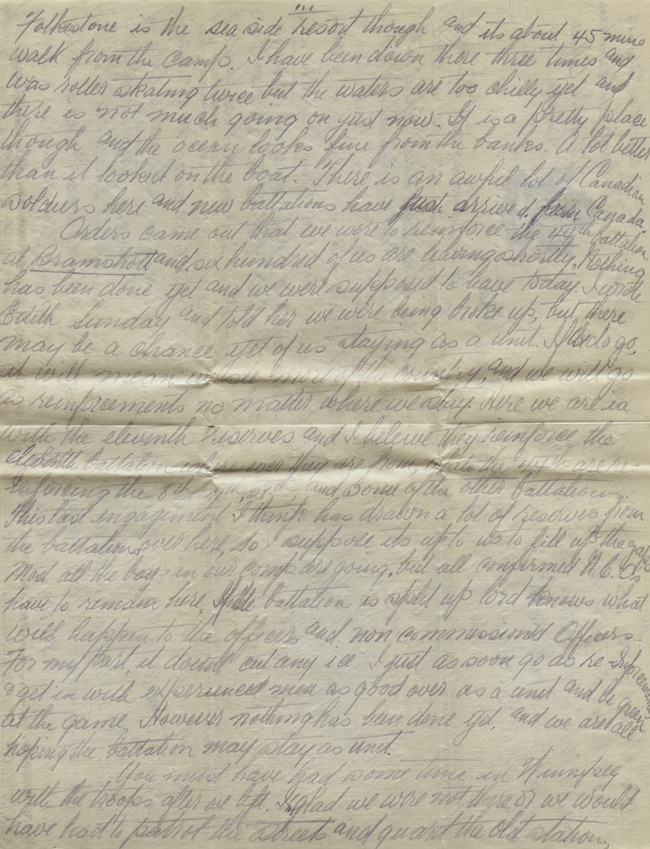 Folkestone is the sea side resort though and its about 45 mins
walk from the camps. I have been down there three times and
was roller skating twice but the waters are too chilly yet and
there is not much going on just now. It is a pretty place
though and the ocean looks fine from the banks. A lot better
than it looked on the boat. There is an awful lot of Canadian
soldiers here and new battalions have just arrived from Canada.
Orders came out that we were to reinforce the 44th battalion
at Bramshott and six hundred of us are leaving shortly. Nothing
has been done yet and we were supposed to leave today. I wrote
Edith Sunday and told her we were being broke up, but there
may be a chance yet of us staying as a unit. If we do go,
it will mean more of the country, and we will go
as reinforcements no matter where we stay. Here we are in
with the eleventh reserves and I beleive they reinforce the
battalion ever they are from, while the 44th are re-
inforcing the 8th and some of the other battalions.
This last engagement I think has drawn a lot of reserves from
the battalions over here, so I suppose its up to us to fill up the gaps
Most all the boys in our comp are going, but all confirmed N.C.O's
have to remain here. If the battalion is split up lord knows what
will happen to the officers and non commissioned Officers.
For my part, it doesnt cut any ice. I just as soon go as re-inforcements
& get in with experienced men as good over as a unit and be green
at the game. However nothing has been done yet, and we are all
hoping the battalion may stay as unit.
You must have had some time in Winnipeg
with the troops after we left. I glad we were not there or we would
have had to patrol the streets and guard the old station,